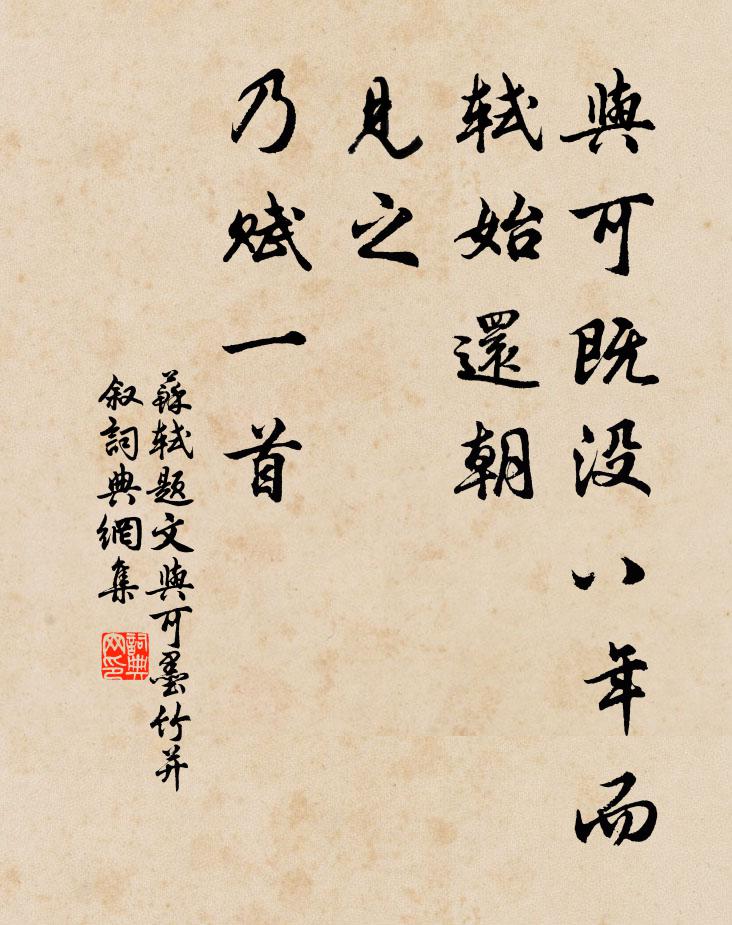 與可既没八年而
軾始還朝
見之
乃賦一首
蘇軾题文與可墨竹并
叙詞典網集
詞典
网印